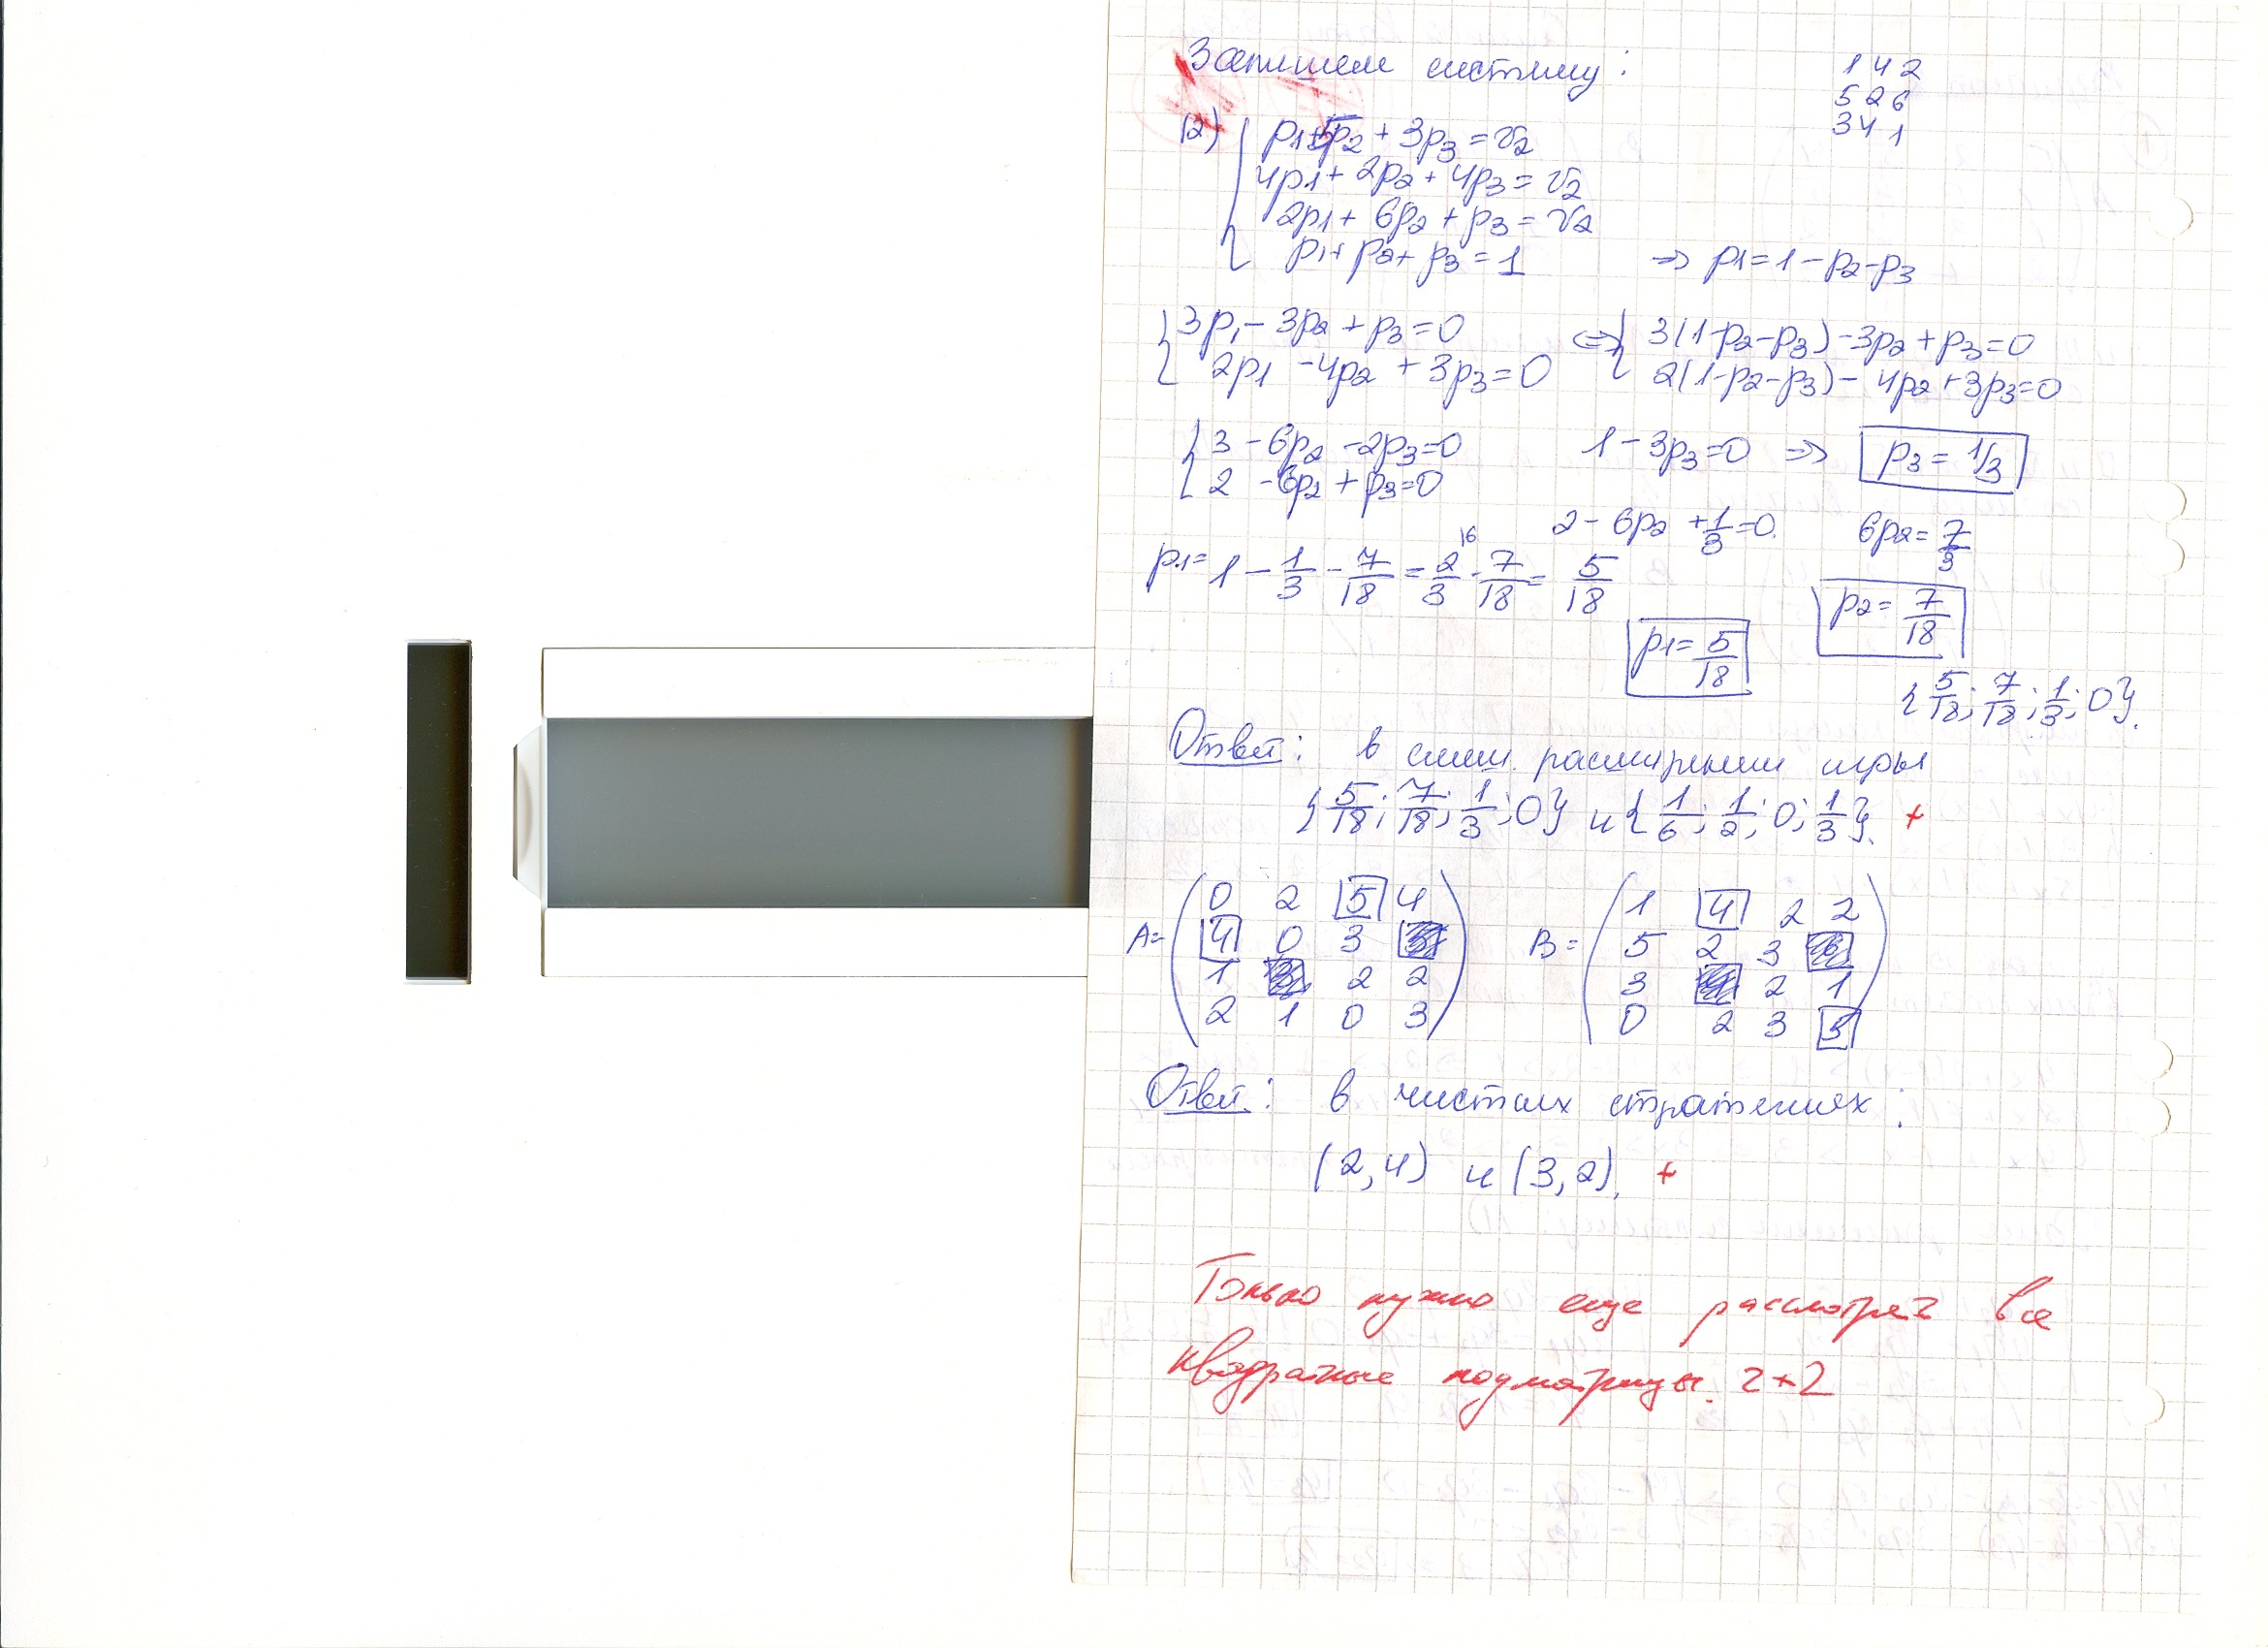 Запишем систему:
1 4 2
5 2 6
3 4 1
(2) { p1+5p2 + 3p3 = v2
4p1 + 2p2 + 4p3 = v2
2p1 + 6p2 + p3 = v2
p1+ p2+ p3 = 1 => p1 = 1 - p2 - p3
{ 3p1 - 3p2 + p3 = 0 <=> { 3(1-p2-p3) - 3p2 + p3 = 0
2p1 - 4p2 + 3p3 = 0 2(1-p2-p3) - 4p2 + 3p3 = 0
{ 3 - 6p2 - 2p3 = 0 1 - 3p3 = 0 => p3 = 1/3
2 - 6p2 + p3 = 0
2 - 6p2 + 1/3 = 0. 6p2 = 7/3
p1 = 1 - 1/3 - 7/18 = 2/3 - 7/18 = 5/18
p2 = 7/18
p1 = 5/18
{5/18; 7/18; 1/3; 0}.
Ответ: в смеш. расширении игры
{5/18; 7/18; 1/3; 0} и {1/6; 1/2; 0; 1/3}. +
A = ( 0 2 5 4 B = ( 1 4 2 2
4 0 3 5 2 3
1 2 2 3 2 1
2 1 0 3 ) 0 2 3 3 )
Ответ: в чистых стратегиях:
(2,4) и (3,2). +
Только нужно еще рассмотреть все
квадратные подматрицы. 2*2